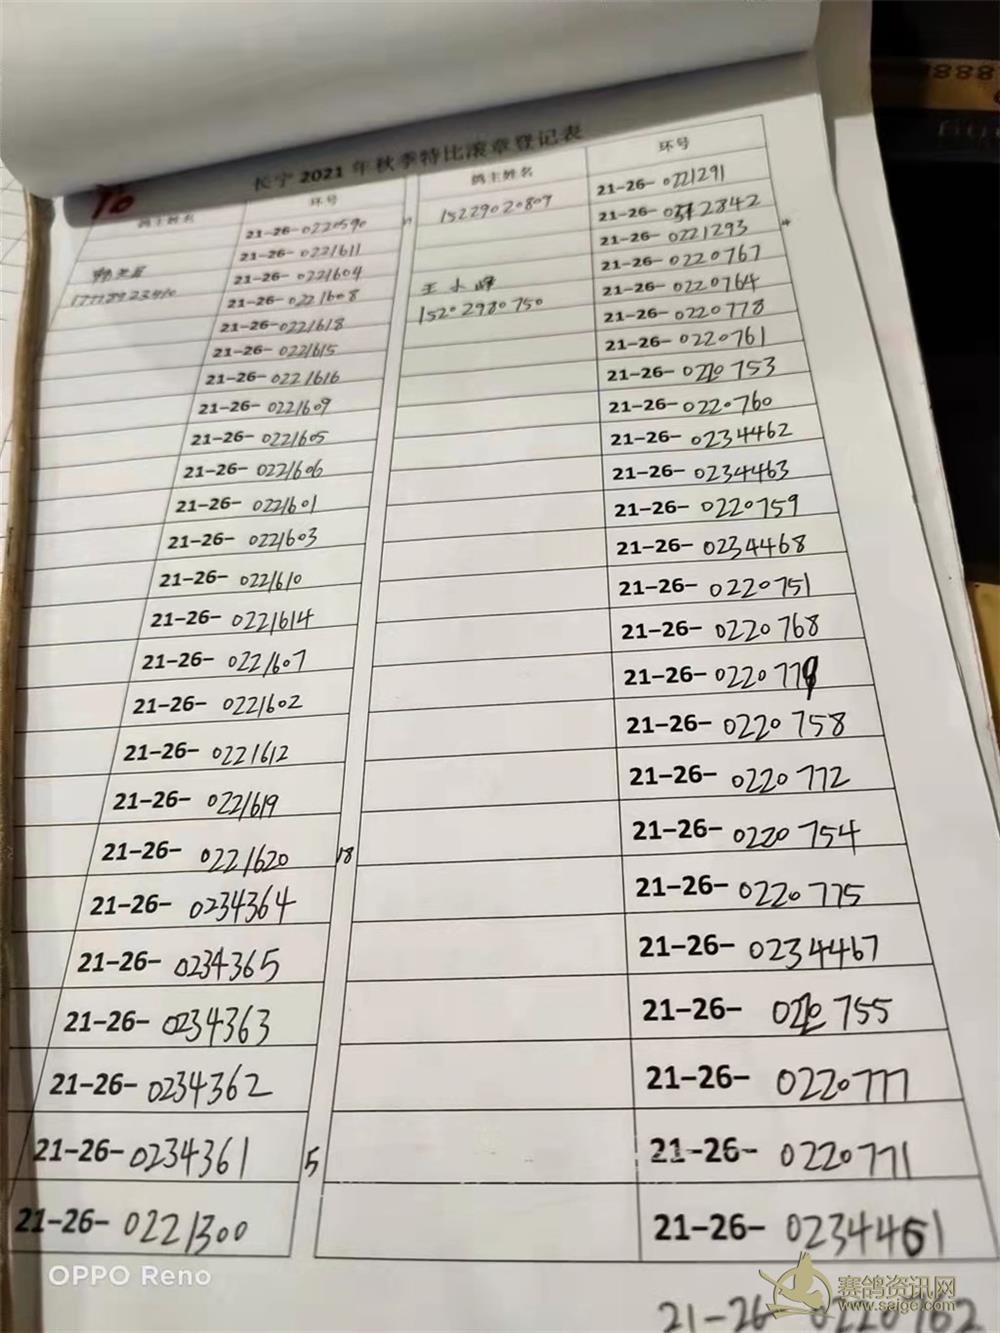 长宁 2021 年秋季特比滚章登记表
16
鸽主姓名 环号
21-26-0220590
21-26-0221611
21-26-0221604
21-26-0221608
21-26-0221618
21-26-0221615
21-26-0221616
21-26-0221609
21-26-0221605
21-26-0221606
21-26-0221601
21-26-0221603
21-26-0221610
21-26-0221614
21-26-0221607
21-26-0221602
21-26-0221612
21-26-0221619
21-26-0221620 18
21-26-0234364
21-26-0234365
21-26-0234363
21-26-0234362
21-26-0234361 5
21-26-0221300
鸽主姓名 环号
15229020807 21-26-0221291
21-26-0312842
21-26-0221293
21-26-0220767
王小峰 21-26-0220764
15202980750 21-26-0220778
21-26-0220761
21-26-0220753
21-26-0220760
21-26-0234462
21-26-0234463
21-26-0220759
21-26-0234468
21-26-0220751
21-26-0220768
21-26-0220779
21-26-0220758
21-26-0220772
21-26-0220754
21-26-0220775
21-26-0234467
21-26-0220755
21-26-0220777
21-26-0220771
21-26-0234461
21-26-0220762
OPPO Reno
赛鸽资讯网
www.saige.com